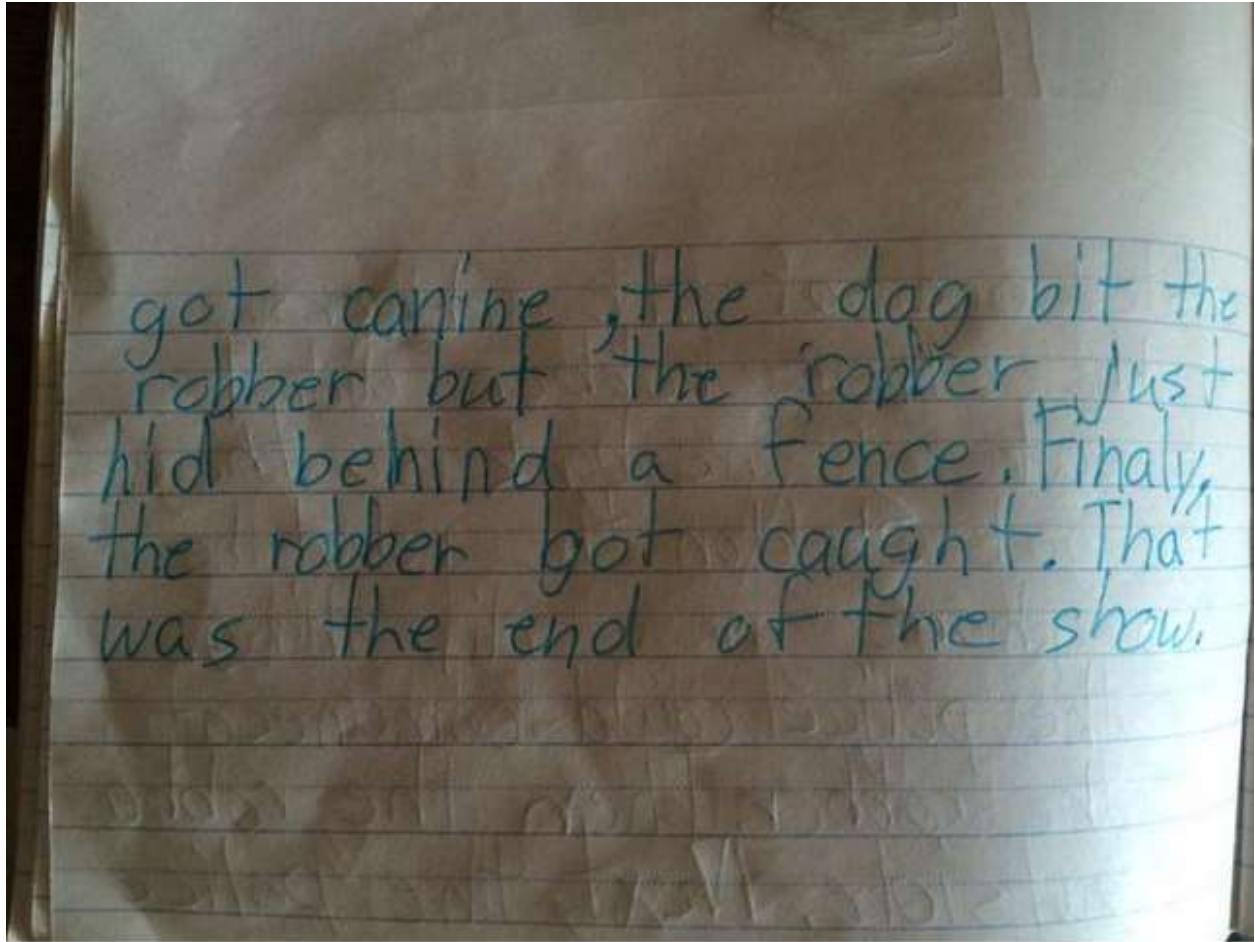 got canine, the dog bit the
robber but the robber just
hid behind a fence. Finaly,
the robber got caught. That
was the end of the show.